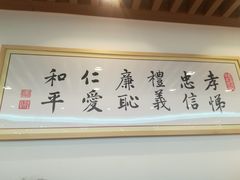 孝悌
忠信
禮義
廉恥
仁愛
和平